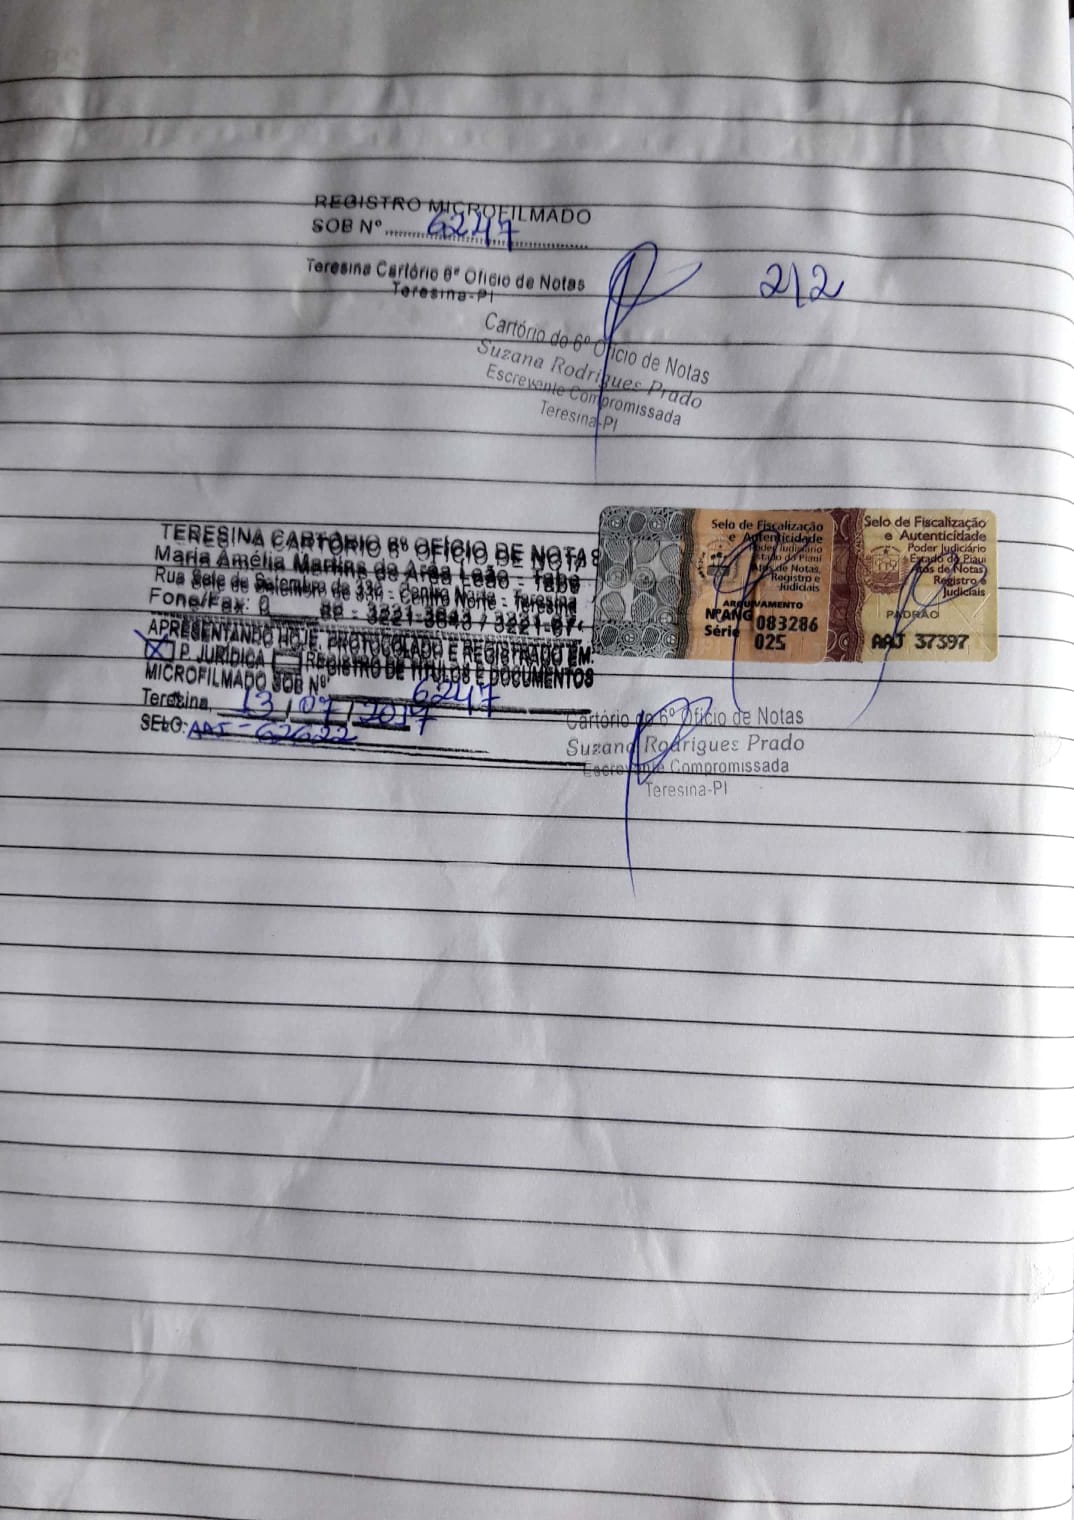 REGISTRO MICROFILMADO
SOB Nº 6247
Teresina Cartório 6º Ofício de Notas
Teresina-PI
2/2
Cartório do 6º Ofício de Notas
Suzana Rodrigues Prado
Escrevente Compromissada
Teresina-PI
TERESINA CARTÓRIO 6º OFÍCIO DE NOTAS
Maria Amélia Martins de Area Leão -
Rua Sete de Setembro de 330 - Centro Norte - Teresina
Fone/Fax: 3221-3643 /
APRESENTANDO HOJE, PROTOCOLADO E REGISTRADO EM:
X P. JURÍDICA REGISTRO DE TITULOS E DOCUMENTOS
MICROFILMADO SOB Nº 6247
Teresina, 13/07/2017
SELO: AAJ-
Selo de Fiscalização
e Autenticidade
Poder Judiciário
Estado do Piauí
Atos de Notas,
Registro e
Judiciais
ARQUIVAMENTO
Nº ANG 083286
Série 025
Selo de Fiscalização
e Autenticidade
Poder Judiciário
Estado do Piauí
Atos de Notas
Registro e
Judiciais
PADRÃO
AAJ 37397
Cartório do 6º Ofício de Notas
Suzana Rodrigues Prado
Escrevente Compromissada
Teresina-PI